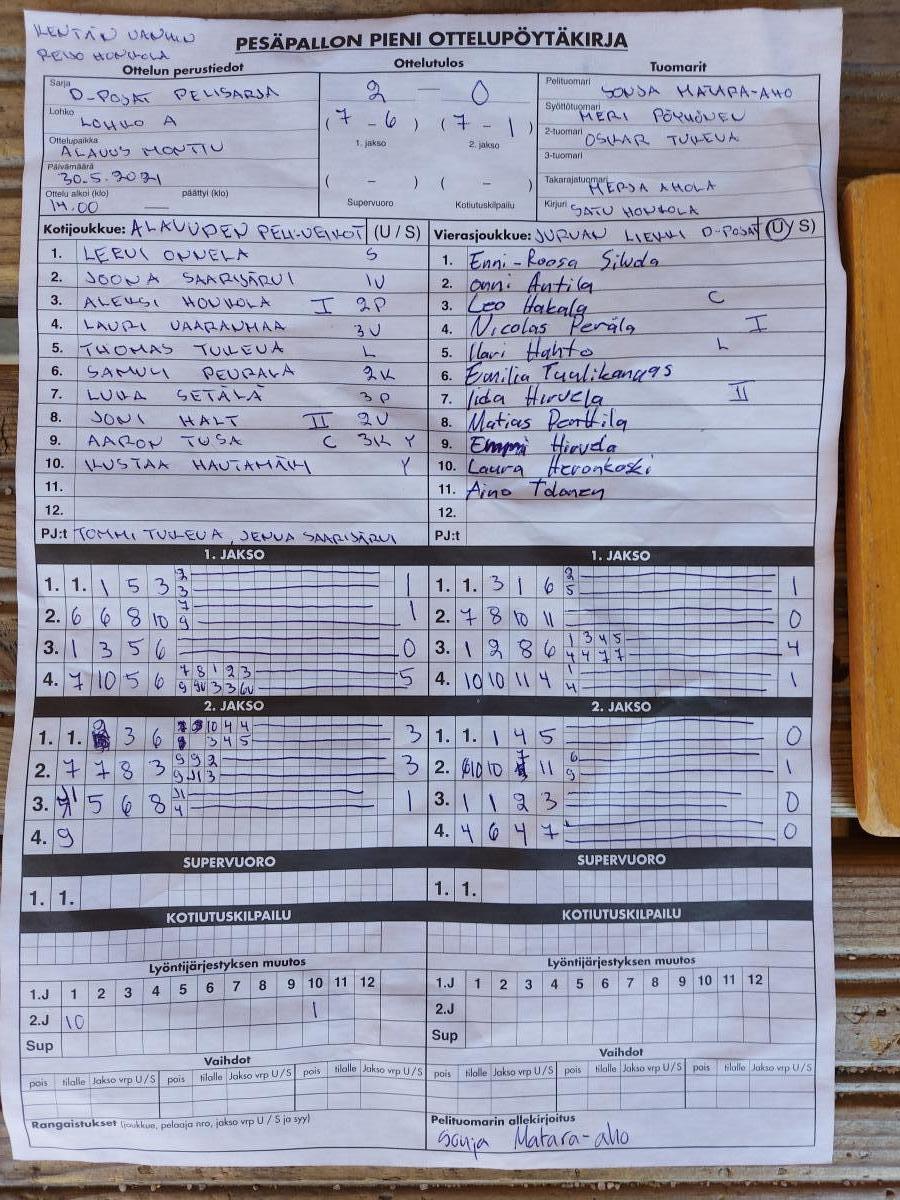 KENTÄN VANHIN
REIJO HONKOLA
PESÄPALLON PIENI OTTELUPÖYTÄKIRJA
Ottelun perustiedot
Ottelutulos
Tuomarit
Sarja D-POJAT PELISARJA
Lohko LOHKO A
Ottelupaikka ALAVUS MONTTU
Päivämäärä 30.5.2021
Ottelu alkoi (klo) päättyi (klo)
14.00 —
2 — 0
(7 - 6) (7 - 1)
1. jakso 2. jakso
( - ) ( - )
Supervuoro Kotiutuskilpailu
Pelituomari SONJA MATARA-AHO
Syöttötuomari MERI PÖYHÖNEN
2-tuomari OSKAR TULEVA
3-tuomari
Takarajatuomari MERJA AHOLA
Kirjuri SATU HONKOLA
Kotijoukkue: ALAVUDEN PELI-VEIKOT (U / S)
1. LEEVI ONNELA S
2. JOONA SAARIJÄRVI 1V
3. ALEKSI HONKOLA I 2P
4. LAURI VAARANMAA 3V
5. THOMAS TULEVA L
6. SAMULI PEURALA 2K
7. LUKA SETÄLÄ 3P
8. JONI HALT II 2V
9. AARON TUSA C 3K Y
10. KUSTAA HAUTAMÄKI Y
11.
12.
PJ:t TOMMI TULEVA, JENNA SAARIJÄRVI
Vierasjoukkue: JURVAN LIEKKI D-POJAT (U / S)
1. Enni-Roosa Siluda
2. Onni Antila
3. Leo Hakala C
4. Nicolas Perälä I
5. Ilari Hahto L
6. Emilia Tuulikangas
7. Iida Hirvela II
8. Matias Penttila
9. Emmi Hirvela
10. Laura Heronkoski
11. Aino Tolonen
12.
PJ:t
1. JAKSO
1. 1. 1 5 3 2 1
3
2. 6 6 8 10 7 1
9
3. 1 3 5 6 0
4. 7 10 5 6 7 8 1 2 3 5
9 9V 3 3 6V
1. JAKSO
1. 1. 3 1 6 2 1
5
2. 7 8 10 11 0
3. 1 2 8 6 1 3 4 5 4
4 4 7 7
4. 10 10 11 4 1 1
4
2. JAKSO
1. 1. 2 3 6 10 4 4 3
3 4 5
2. 7 7 8 3 9 9 2 3
9 J1 3
3. J1 5 6 8 J1 1
4
4. 9
2. JAKSO
1. 1. 1 4 5 0
2. 10 10 7 11 6 1
9
3. 1 1 2 3 0
4. 4 6 4 7 0
SUPERVUORO
1. 1.
SUPERVUORO
1. 1.
KOTIUTUSKILPAILU
KOTIUTUSKILPAILU
Lyöntijärjestyksen muutos
1.J 1 2 3 4 5 6 7 8 9 10 11 12
2.J 10 1
Sup
Lyöntijärjestyksen muutos
1.J 1 2 3 4 5 6 7 8 9 10 11 12
2.J
Sup
Vaihdot
pois tilalle Jakso vrp U / S pois tilalle Jakso vrp U / S pois tilalle Jakso vrp U / S
Vaihdot
pois tilalle Jakso vrp U / S pois tilalle Jakso vrp U / S pois tilalle Jakso vrp U / S
Rangaistukset (joukkue, pelaaja nro, jakso vrp U / S ja syy)
Pelituomarin allekirjoitus
Sonja Matara-aho